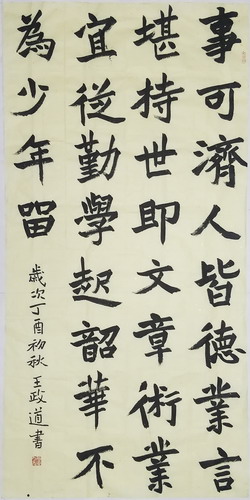 事可濟人皆德業言
堪持世即文章術業
宜從勤學起韶華不
為少年留
歲次丁酉初秋王政道書